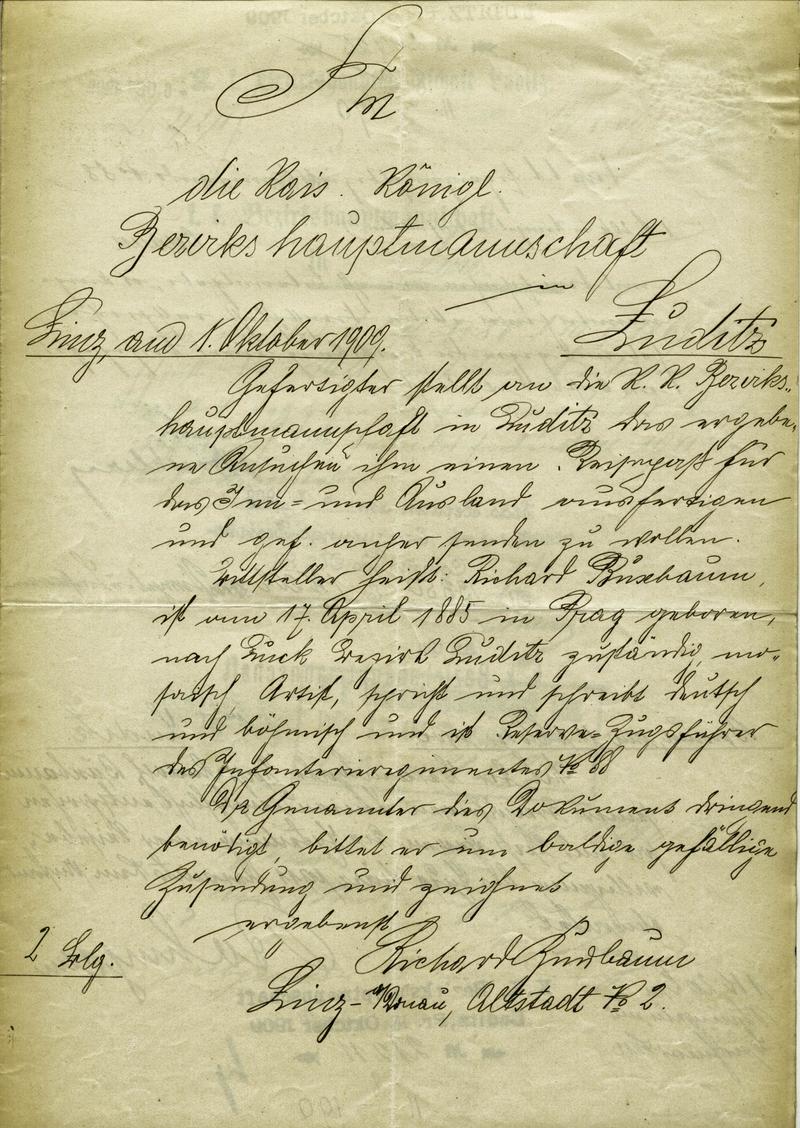 An
die Kais. Königl.
Bezirkshauptmannschaft
in
Luditz
Linz, am 1. Oktober 1909.
Gefertigter stellt an die K. K. Bezirks-
hauptmannschaft in Luditz das ergebe-
ne Ansuchen ihm einen Reisepaß für
das Inn- und Ausland ausfertigen
und gef. anher senden zu wollen.
Bittsteller heißt: Richard Buxbaum,
ist am 17. April 1885 in Prag geboren,
nach Luck Bezirk Luditz zuständig, mo-
saisch, Artist, spricht und schreibt deutsch
und böhmisch und ist Reserve-Zugsführer
des Infanterieregimentes No 88
Da Genannter dies Dokument dringend
benötigt, bittet er um baldige gefällige
Zusendung und zeichnet
ergebenst
Richard Buxbaum
2 Blg.
Linz-Donau, Altstadt No 2.